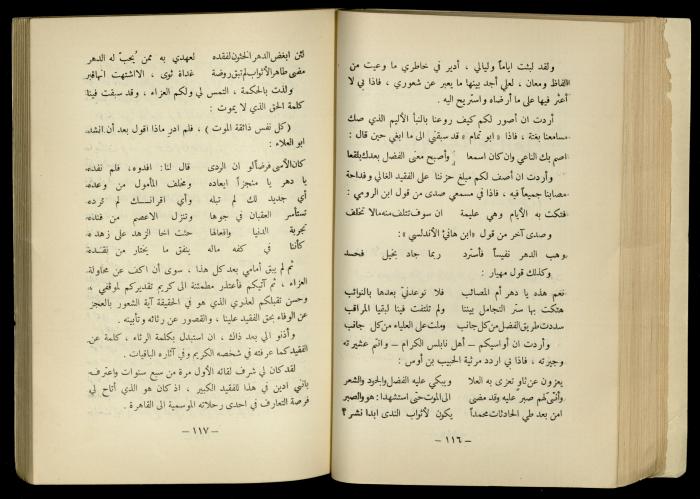 ولقد لبثت اياماً وليالي ، أدير في خاطري ما وعيت من
الفاظ ومعان ، لعلي أجد بينها ما يعبر عن شعوري ، فاذا بي لا
أعثر فيها على ما أرضاه واستريح اليه .
أردت ان أصور لكم كيف روعنا بالنبأ الأليم الذي صك
مسامعنا بغتة ، فاذا « ابو تمام » قد سبقني الى ما ابغي حين قال :
اصم بك الناعي وان كان اسمعا وأصبح مغنى الفضل بعدك بلقعا
وأردت ان أصف لكم مبلغ حزننا على الفقيد الغالي وفداحة
مصابنا جميعاً فيه ، فاذا في مسمعي صدى من قول ابن الرومي :
فتكت به الأيام وهي عليمة ان سوف تتلف منه مالا تخلف
وصدى آخر من قول «ابن هانئ الأندلسي» :
وهب الدهر نفيساً فأسترد ربما جاد بخيل فحسد
وكذلك قول مهيار :
نعم هذه يا دهر أم المصائب فلا توعدني بعدها بالنوائب
هتكت بها ستر التجامل بيننا ولم تلتفت فينا لبقيا المراقب
سددت طريق الفضل من كل جانب وملت على العلياء من كل جانب
وأردت ان أواسيكم – أهل نابلس الكرام – وانتم عشيرته
وجيرته ، فاذا بي اردد مرثية الحبيب بن أوس :
يعزون عن ثاو تعزى به العلا ويبكي عليه الفضل والجود والشعر
وأنى لهم صبر عليه وقد مضى الى الموت حتى استشهدا : هو والصبر
امن بعد طي الحادثات محمداً يكون لأثواب الندى ابدا نشر ؟
– ١١٦ –
لئن ابغض الدهر الخئون لفقده لعهدي به ممن يُحب له الدهر
مضى طاهر الأثواب لم تبق روضة غداة ثوى ، الا اشتهت انها قبر
ولذت بالحكمة ، التمس لي ولكم العزاء ، وقد سبقت فينا
كلمة الحق الذي لا يموت :
(كل نفس ذائقة الموت) ، فلم ادر ماذا اقول بعد أن انشد
ابو العلاء :
كان الأسى فرضاً لو ان الردى قال لنا: افدوه، فلم نفده
يا دهر يا منجزاً ايعاده ومخلف المأمول من وعده
أي جديد لك لم تبله وأي اقرانك لم ترده
تستأسر العقبان في جوها وتنزل الاعصم من فنده
تجربة الدنيا وافعالها حثت اخا الزهد على زهده
كأننا في كفه ماله ينفق ما يختار من نقده
ثم لم يبق أمامي بعد كل هذا ، سوى أن اكف عن محاولة
العزاء ، ثم آتيكم فأعتذر مطمئنة الى كريم تقديركم لموقفي ،
وحسن تقبلكم لعذري الذي هو في الحقيقة آية الشعور بالعجز
عن الوفاء بحق الفقيد علينا ، والقصور عن رثائه وتأبينه .
وأذنو الي بعد ذاك ، ان استبدل بكلمة الرثاء ، كلمة عن
الفقيد كما عرفته في شخصه الكريم وفي آثاره الباقيات .
لقد كان لي شرف لقائه الأول مرة من سبع سنوات واعترف
بانني ادين في هذا للفقيد الكبير ، اذ كان هو الذي أتاح لي
فرصة التعارف في احدى رحلاته الموسمية الى القاهرة .
– ١١٧ –